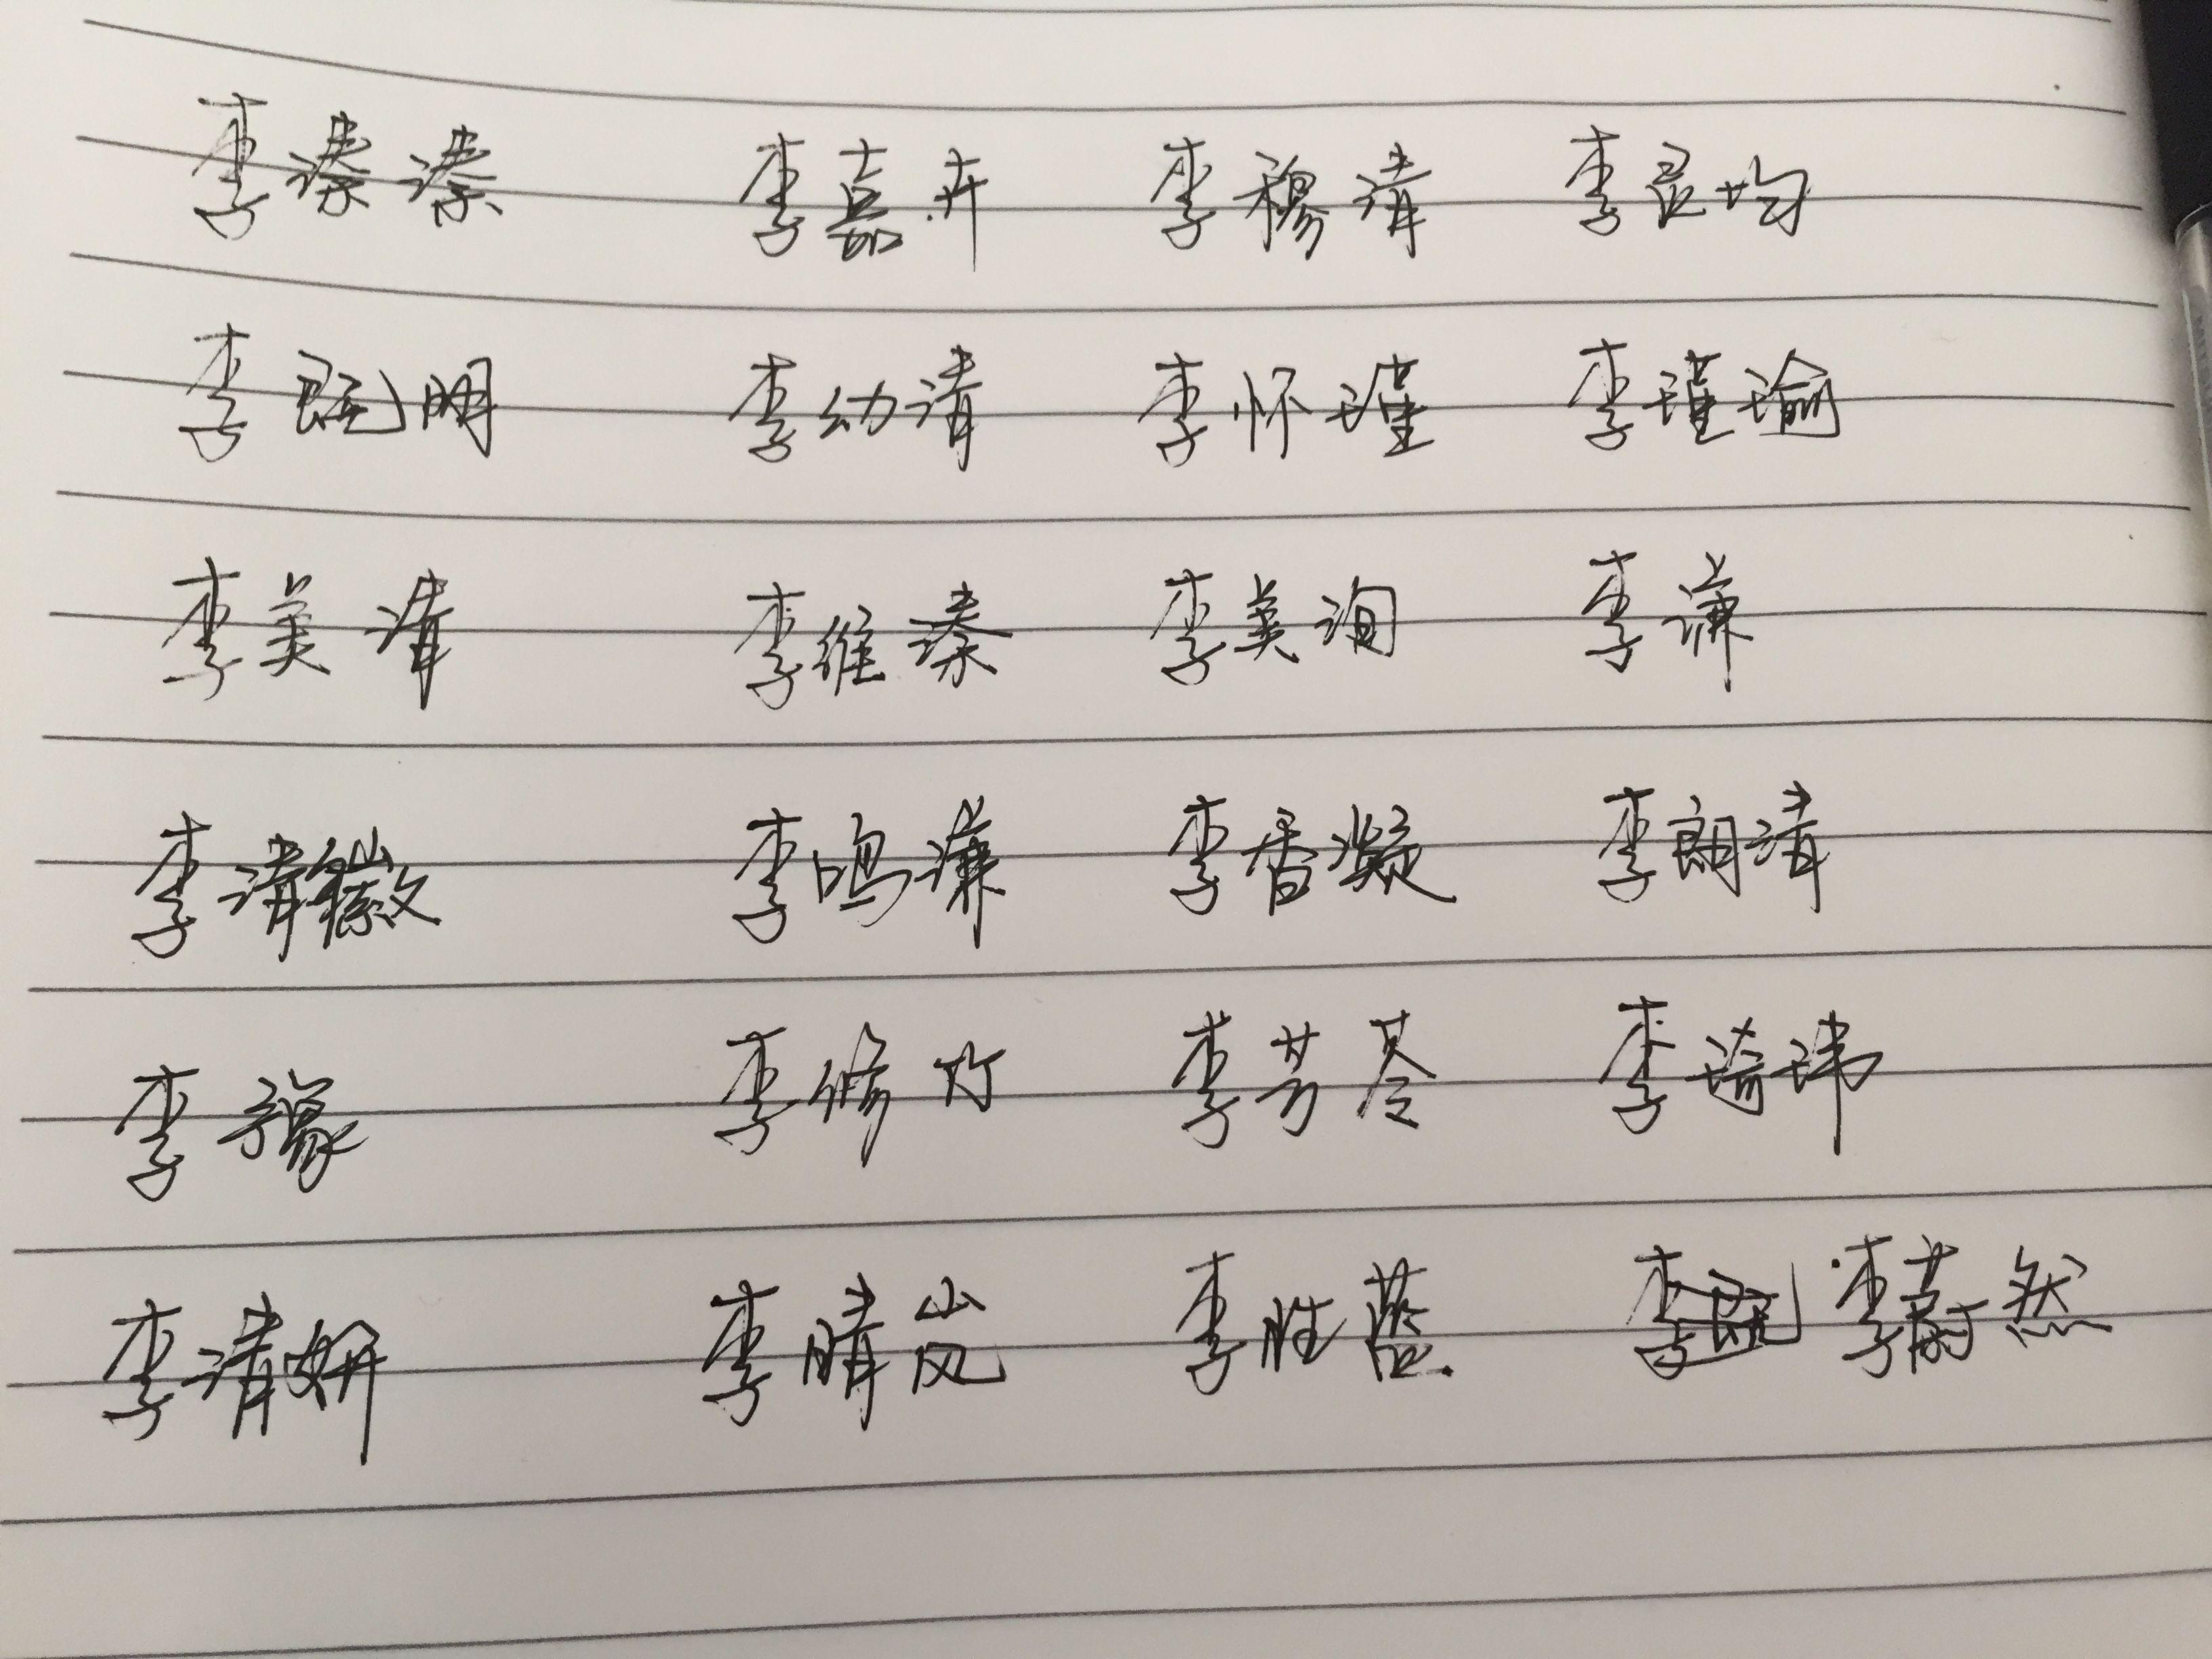 李溱溱 李嘉卉 李穆清 李灵均
李既明 李幼清 李怀瑾 李瑾瑜
李美清 李维臻 李美洵 李谦
李清徽 李鸣谦 李香凝 李朗清
李豫 李修竹 李芳苓 李琦玮
李清妍 李晴岚 李胜蓝 李蔚然